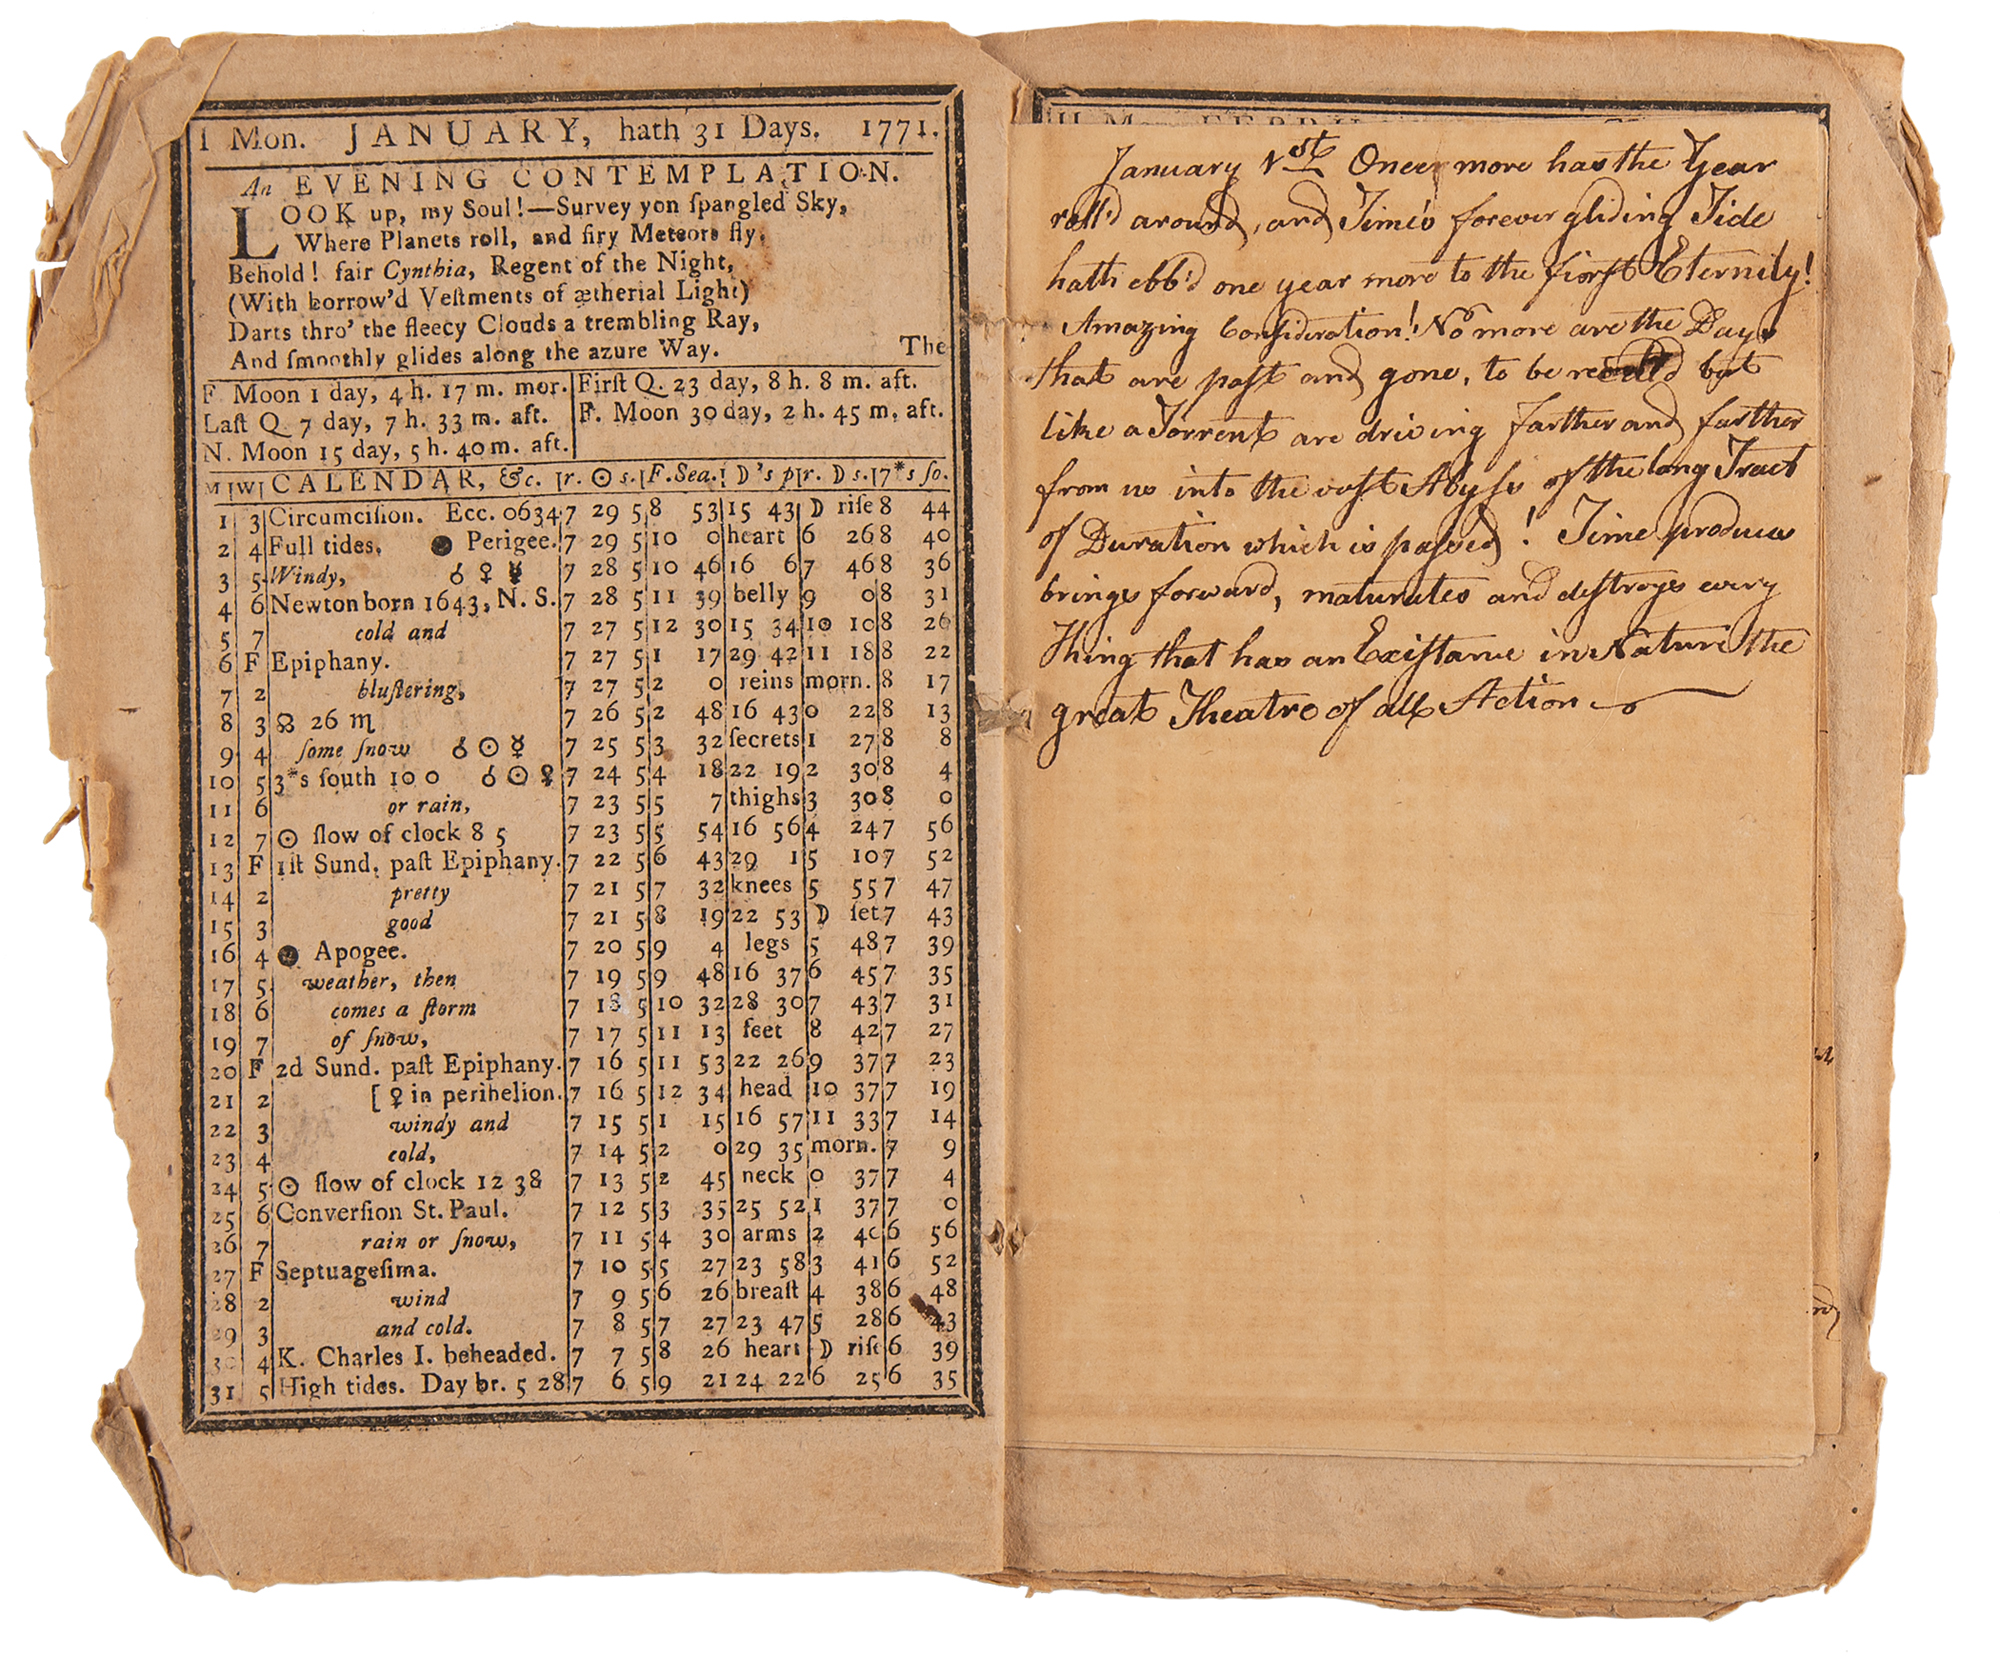 1 Mon. JANUARY, hath 31 Days. 1771.
An EVENING CONTEMPLATION.
LOOK up, my Soul!—Survey yon ſpangled Sky,
Where Planets roll, and firy Meteors fly,
Behold! fair Cynthia, Regent of the Night,
(With borrow'd Veſtments of ætherial Light)
Darts thro' the fleecy Clouds a trembling Ray,
And ſmoothly glides along the azure Way. The
F. Moon 1 day, 4 h. 17 m. mor.
Laſt Q. 7 day, 7 h. 33 m. aft.
N. Moon 15 day, 5 h. 40 m. aft.
Firſt Q. 23 day, 8 h. 8 m. aft.
F. Moon 30 day, 2 h. 45 m, aft.
M W CALENDAR, &c. r. ☉ s. F. Sea. D's p r. D s. 7*s ſo.
1 3 Circumciſion. Ecc. 0634 7 29 5 8 53 15 43 D riſe 8 44
2 4 Full tides. ● Perigee. 7 29 5 10 0 heart 6 26 8 40
3 5 Windy, ☌ ♀ ☿ 7 28 5 10 46 16 6 7 46 8 36
4 6 Newton born 1643, N. S. 7 28 5 11 39 belly 9 0 8 31
5 7 cold and 7 27 5 12 30 15 34 10 10 8 26
6 F Epiphany. 7 27 5 1 17 29 42 11 18 8 22
7 2 bluſtering, 7 27 5 2 0 reins morn. 8 17
8 3 ☊ 26 ♏ 7 26 5 2 48 16 43 0 22 8 13
9 4 ſome ſnow ☌ ☉ ☿ 7 25 5 3 32 ſecrets 1 27 8 8
10 5 3*s ſouth 10 0 ☌ ☉ ♀ 7 24 5 4 18 22 19 2 30 8 4
11 6 or rain, 7 23 5 5 7 thighs 3 30 8 0
12 7 ☉ ſlow of clock 8 5 7 23 5 5 54 16 56 4 24 7 56
13 F 1ſt Sund. paſt Epiphany. 7 22 5 6 43 29 1 5 10 7 52
14 2 pretty 7 21 5 7 32 knees 5 55 7 47
15 3 good 7 21 5 8 19 22 53 D ſet 7 43
16 4 ● Apogee. 7 20 5 9 4 legs 5 48 7 39
17 5 weather, then 7 19 5 9 48 16 37 6 45 7 35
18 6 comes a ſtorm 7 18 5 10 32 28 30 7 43 7 31
19 7 of ſnow, 7 17 5 11 13 feet 8 42 7 27
20 F 2d Sund. paſt Epiphany. 7 16 5 11 53 22 26 9 37 7 23
21 2 [♀ in perihelion. 7 16 5 12 34 head 10 37 7 19
22 3 windy and 7 15 5 1 15 16 57 11 33 7 14
23 4 cold, 7 14 5 2 0 29 35 morn. 7 9
24 5 ☉ ſlow of clock 12 38 7 13 5 2 45 neck 0 37 7 4
25 6 Converſion St. Paul. 7 12 5 3 35 25 52 1 37 7 0
26 7 rain or ſnow, 7 11 5 4 30 arms 2 40 6 56
27 F Septuageſima. 7 10 5 5 27 23 58 3 41 6 52
28 2 wind 7 9 5 6 26 breaſt 4 38 6 48
29 3 and cold. 7 8 5 7 27 23 47 5 28 6 43
30 4 K. Charles I. beheaded. 7 7 5 8 26 heart D riſe 6 39
31 5 High tides. Day br. 5 28 7 6 5 9 21 24 22 6 25 6 35
January 1st Once more has the Year
roll'd around, and Time's forever gliding Tide
hath ebb'd one year more to the Eternity!
Amazing Conſideration! No more are the Days
that are paſt and gone, to be but
like a Torrent are driving farther and farther
from us into the vaſt Abyſs of the long Tract
of Duration which is paſsed! Time produces
brings forward, maturates and deſtroys every
Thing that has an Exiſtance in Nature the
great Theatre of all Action